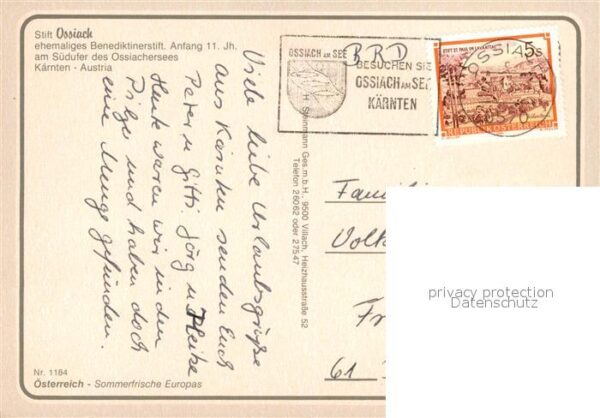 Stift Ossiach
ehemaliges Benediktinerstift. Anfang 11. Jh.
am Südufer des Ossiachersees
Kärnten - Austria
Viele liebe Urlaubsgrüße
aus Kärnten senden Euch
Peter u. Gitti. Jörg u. Heike
Heute waren wir in den
Pilze und haben doch
eine Menge gefunden.
Nr. 1184
Österreich - Sommerfrische Europas
H. Steinmann Ges.m.b.H., 9500 Villach, Heizhausstraße 52
Telefon 26062 oder 27547
OSSIACH AM SEE
BRD
BESUCHEN SIE
OSSIACH AM SEE
KÄRNTEN
STIFT ST. PAUL IM LAVANTTAL
5s
REPUBLIK ÖSTERREICH
OSSIACH
Famili
Volk
Fr
61
privacy protection
Datenschutz